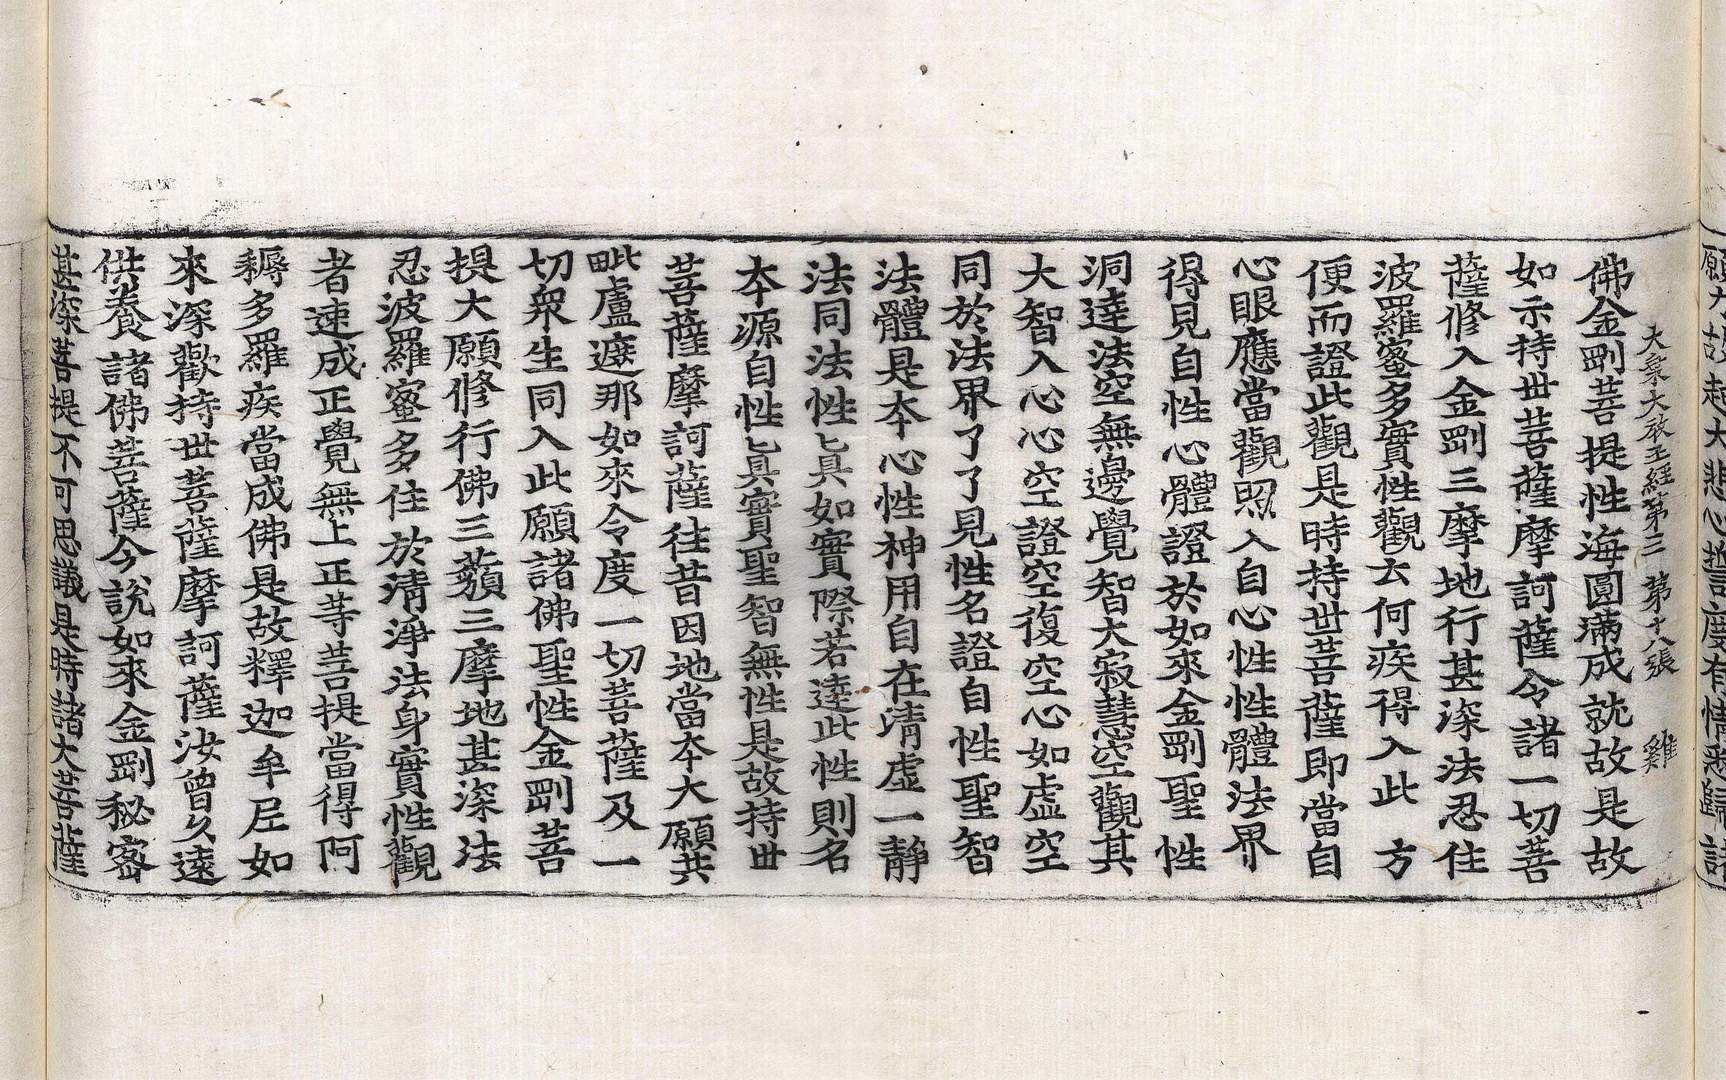 願力故起大悲心誓度有情悉歸諸
大乘大教王經第三　第十八張　雞
佛金剛菩提性海圓滿成就故是故
如示持世菩薩摩訶薩令諸一切菩
薩修入金剛三摩地行甚深法忍住
波羅蜜多實性觀云何疾得入此方
便而證此觀是時持世菩薩即當自
心眼應當觀照入自心性性體法界
得見自性心體證於如來金剛聖性
洞達法空無邊覺智大寂慧空觀其
大智入心心空證空復空心如虛空
同於法界了了見性名證自性聖智
法體是本心性神用自在清虛一靜
法同法性眞如實際若達此性則名
本源自性眞實聖智無性是故持世
菩薩摩訶薩往昔因地當本大願共
毗盧遮那如來令度一切菩薩及一
切衆生同入此願諸佛聖性金剛菩
提大願修行佛三藐三摩地甚深法
忍波羅蜜多住於清淨法身實性觀
者速成正覺無上正等菩提當得阿
耨多羅疾當成佛是故釋迦牟尼如
來深歡持世菩薩摩訶薩汝曾久遠
供養諸佛菩薩今說如來金剛秘密
甚深菩提不可思議是時諸大菩薩